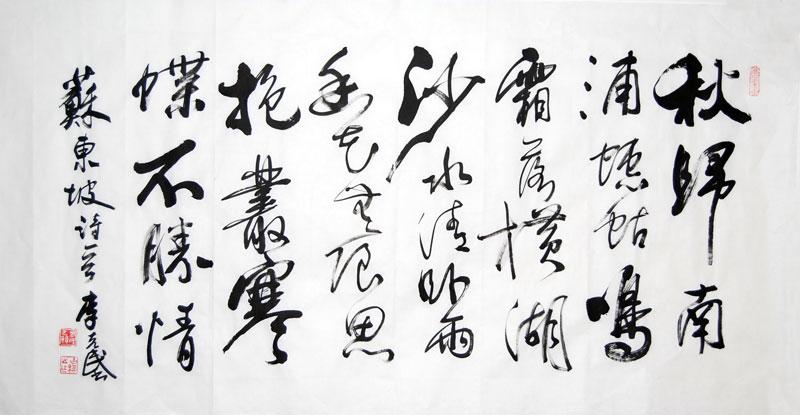 秋歸南
浦蟪蛄鳴
霜落横湖
沙水清卧雨
幽花無限思
抱叢寒
蝶不勝情
蘇東坡詩一首 李